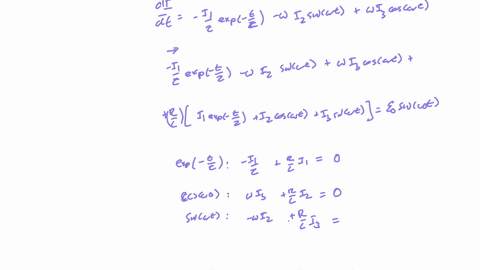 dI/dt = -I₁/τ exp(-t/τ) -ω I₂ sin(ωt) + ω I₃ cos(ωt)
→
-I₁/τ exp(-t/τ) -ω I₂ sin(ωt) + ω I₃ cos(ωt) +
+(R/L) [ I₁ exp(-t/τ) + I₂ cos(ωt) + I₃ sin(ωt) ] = ℰ₀ sin(ωt)
exp(-t/τ): -I₁/τ + R/L I₁ = 0
cos(ωt): ω I₃ + R/L I₂ = 0
sin(ωt): -ω I₂ + R/L I₃ =